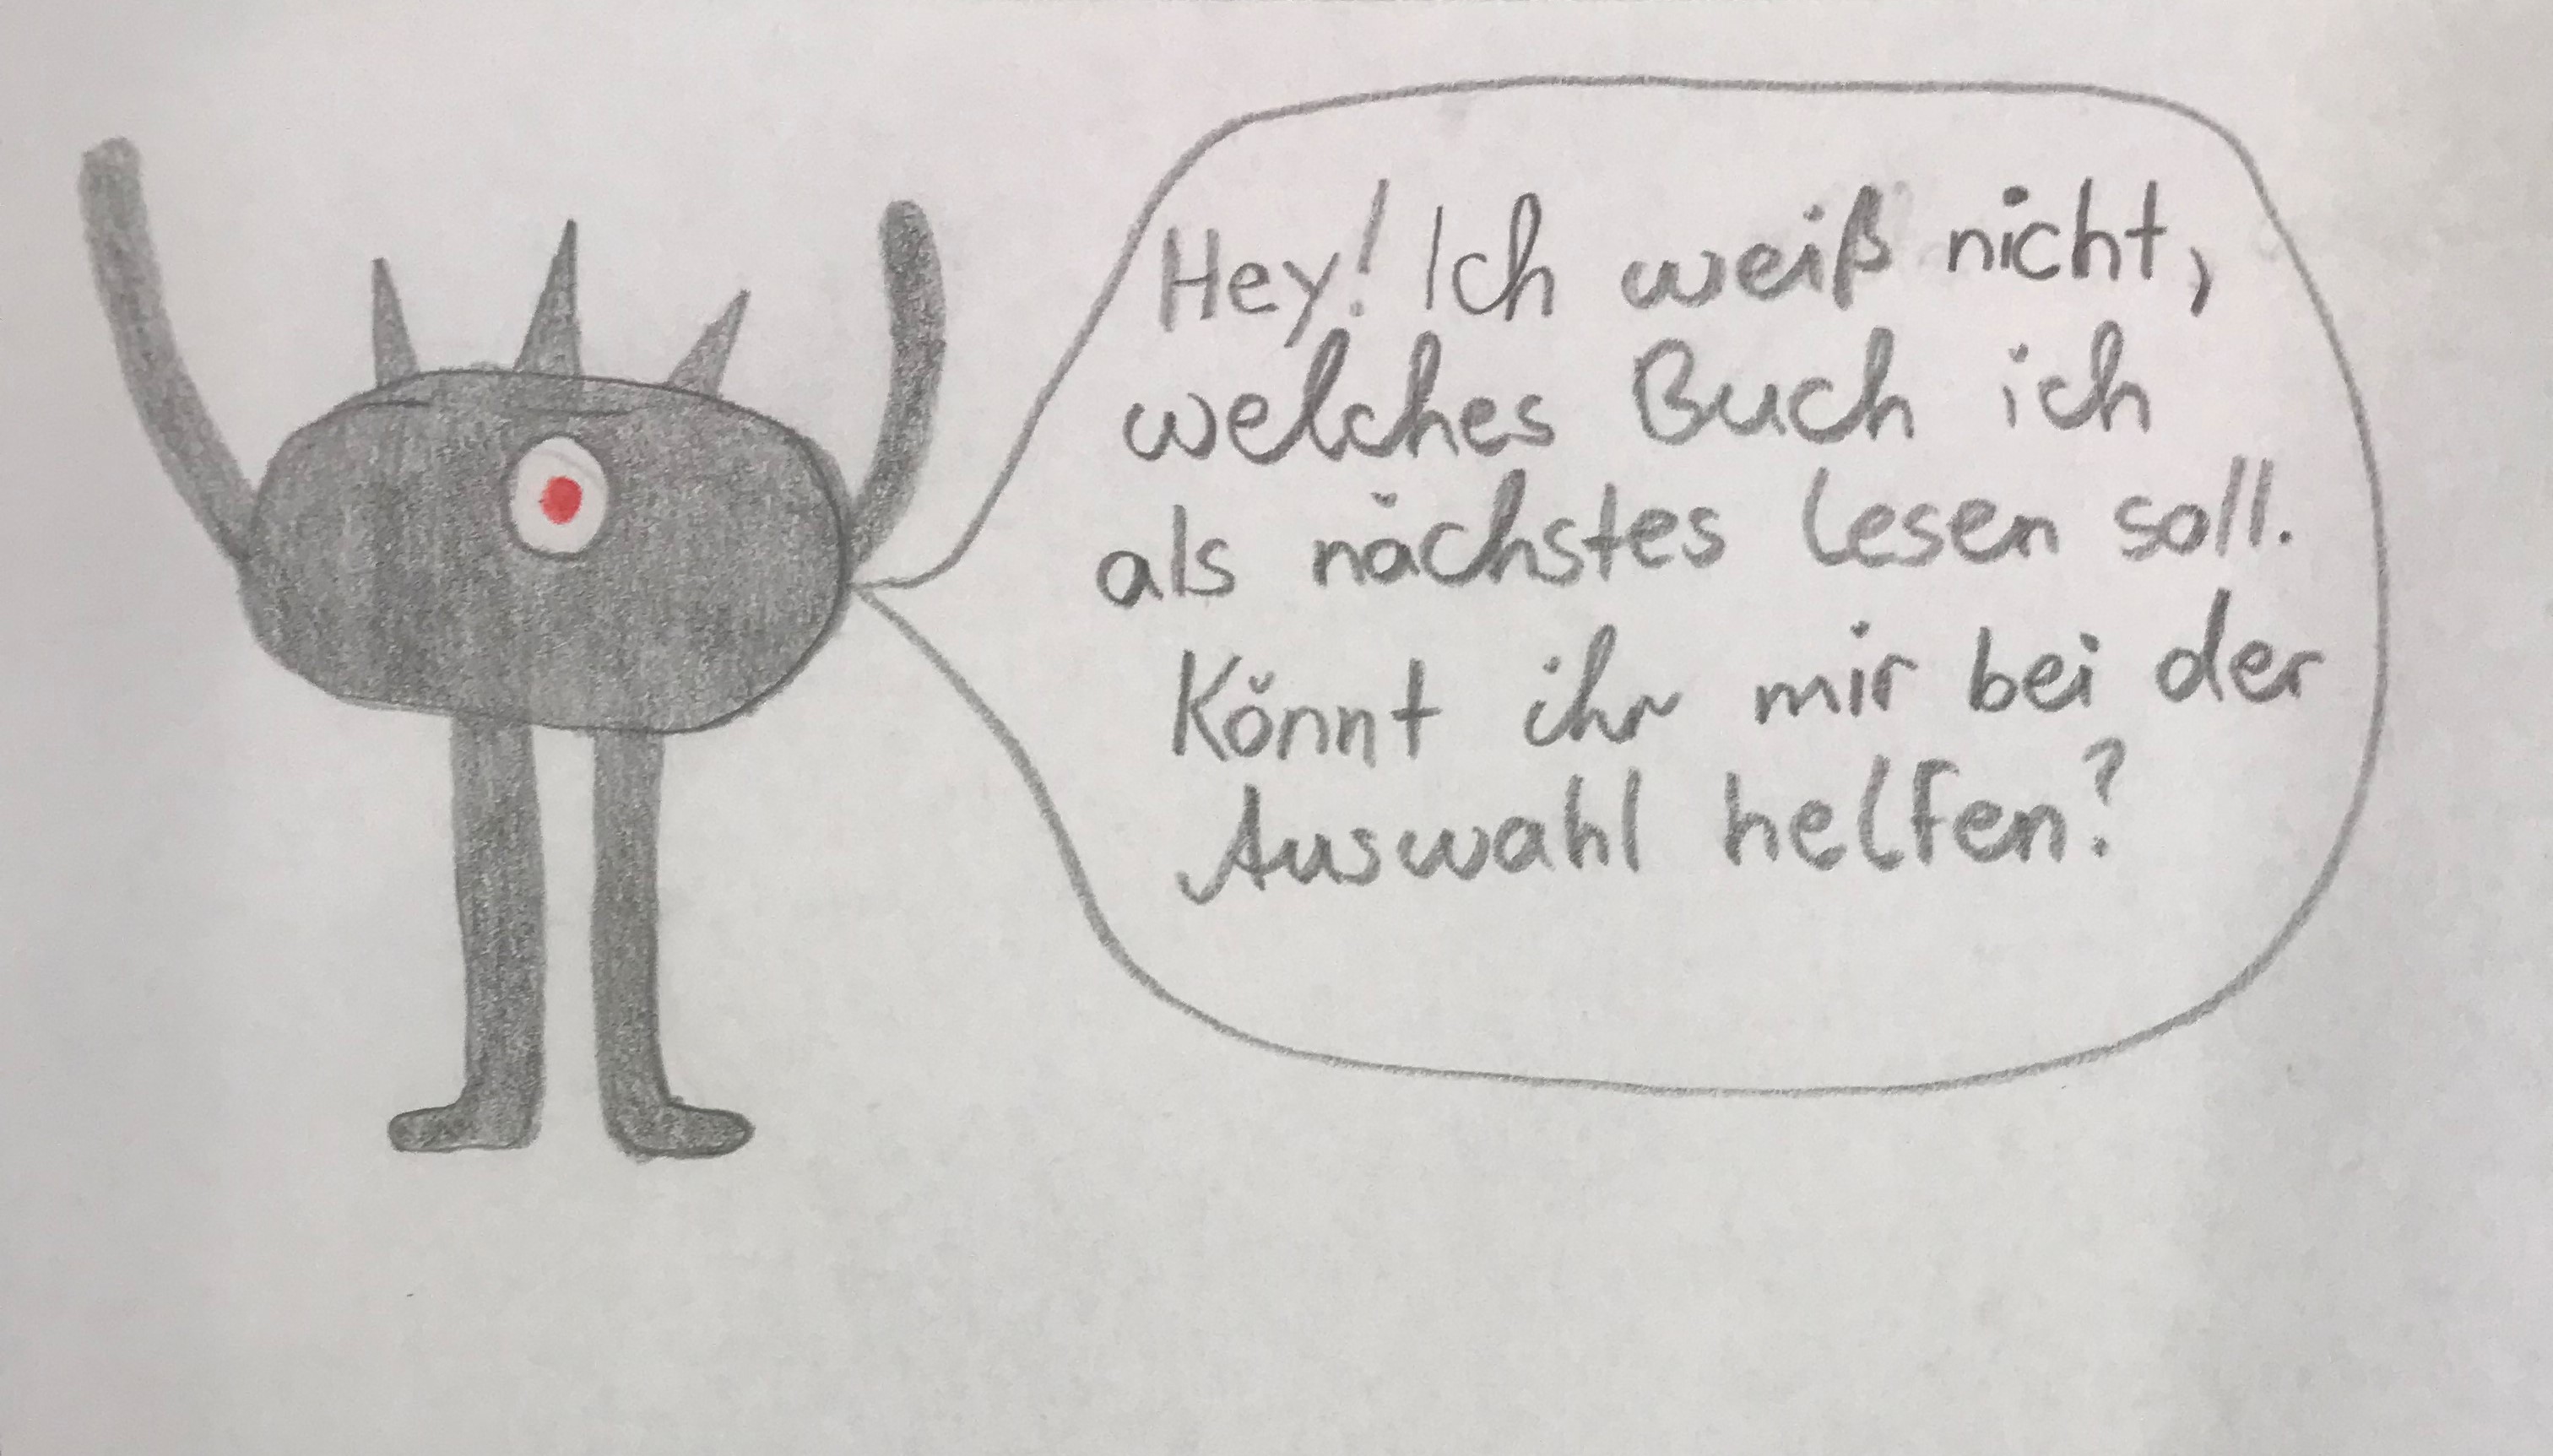 Hey! Ich weiß nicht,
welches Buch ich
als nächstes lesen soll.
Könnt ihr mir bei der
Auswahl helfen?